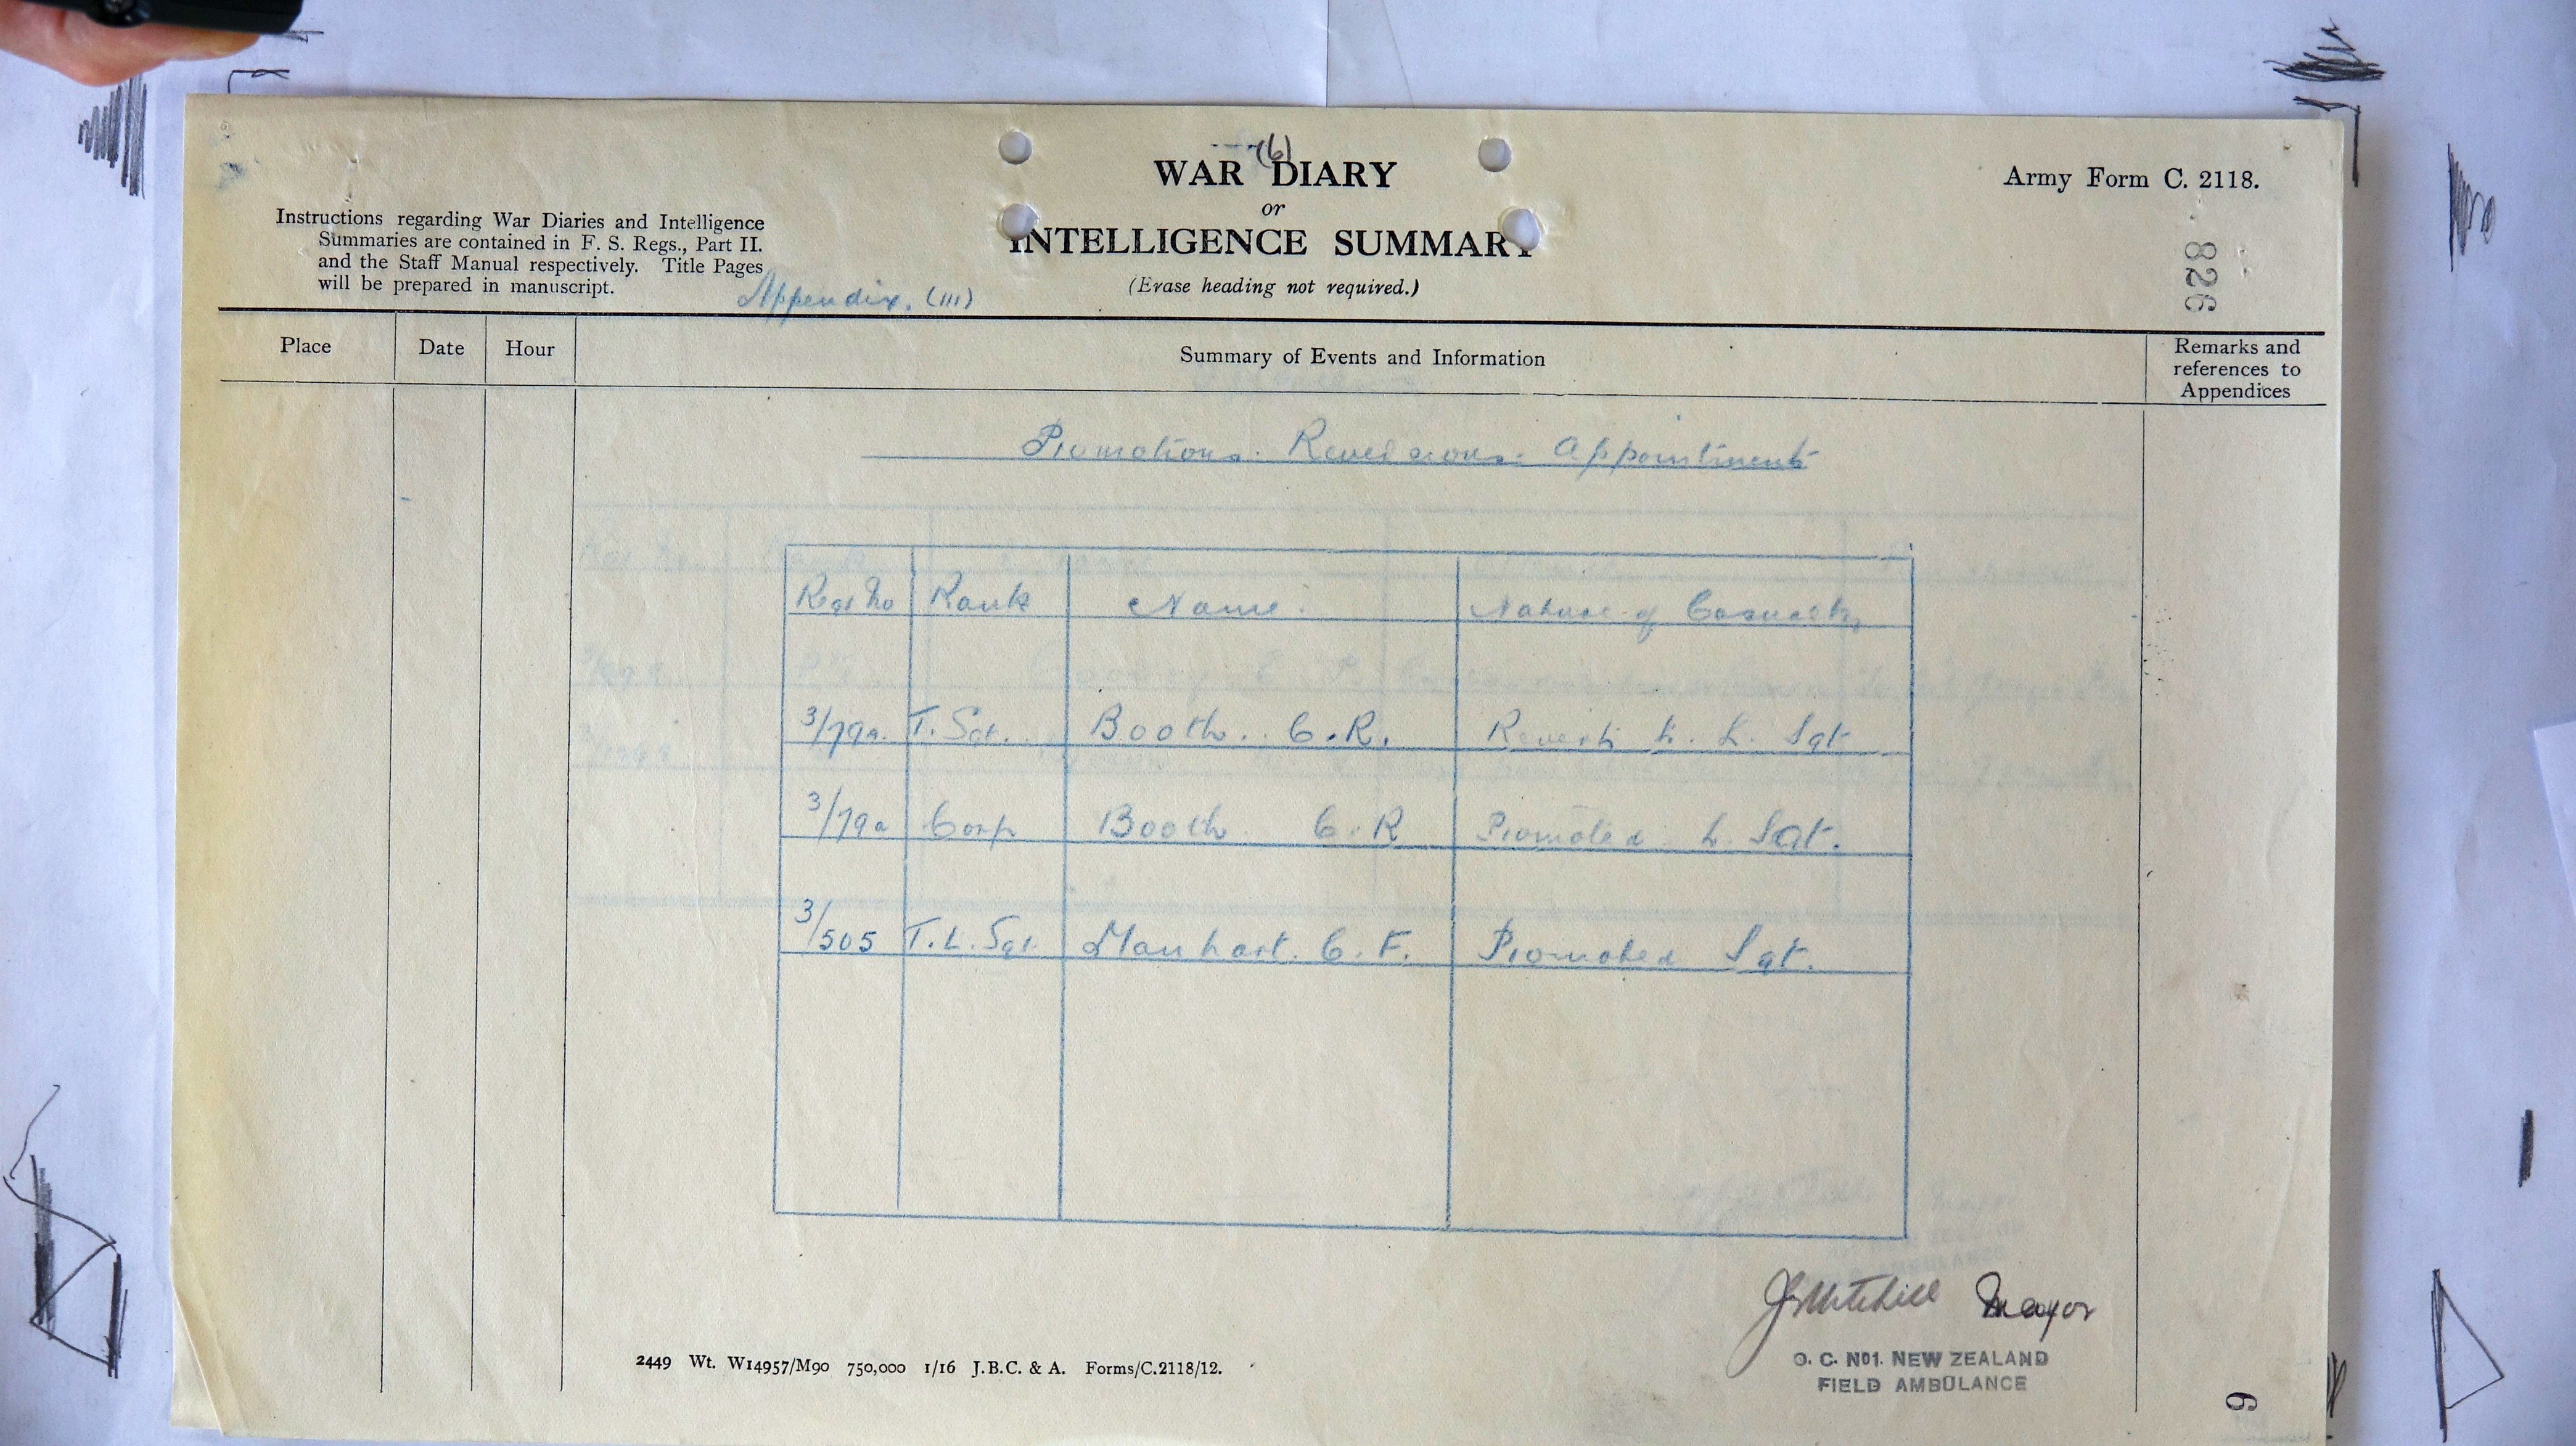 (6)
WAR DIARY
or
INTELLIGENCE SUMMARY
(Erase heading not required.)
Army Form C. 2118.
826
Instructions regarding War Diaries and Intelligence
Summaries are contained in F. S. Regs., Part II.
and the Staff Manual respectively. Title Pages
will be prepared in manuscript.
Appendix. (III)
Place Date Hour Summary of Events and Information Remarks and references to Appendices
Promotions. Reversions. Appointments
Reg No Rank Name. Nature of Casualty
T. Sgt. Booth. C.R. Reverts to L. Sgt
Corp Booth C.R Promoted L. Sgt.
3/505 T.L. Sgt. Manhart. C.F. Promoted Sgt.
Mayor
O. C. No1. NEW ZEALAND
FIELD AMBULANCE
2449 Wt. W14957/M90 750,000 1/16 J.B.C. & A. Forms/C.2118/12.
6